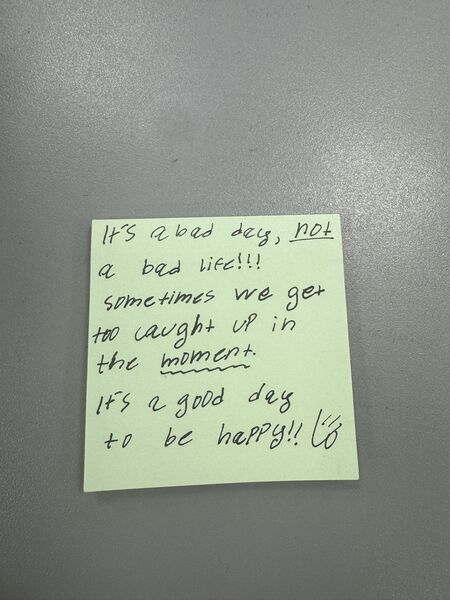 It's a bad day, not
a bad life!!!
sometimes we get
too caught up in
the moment.
It's a good day
to be happy!!